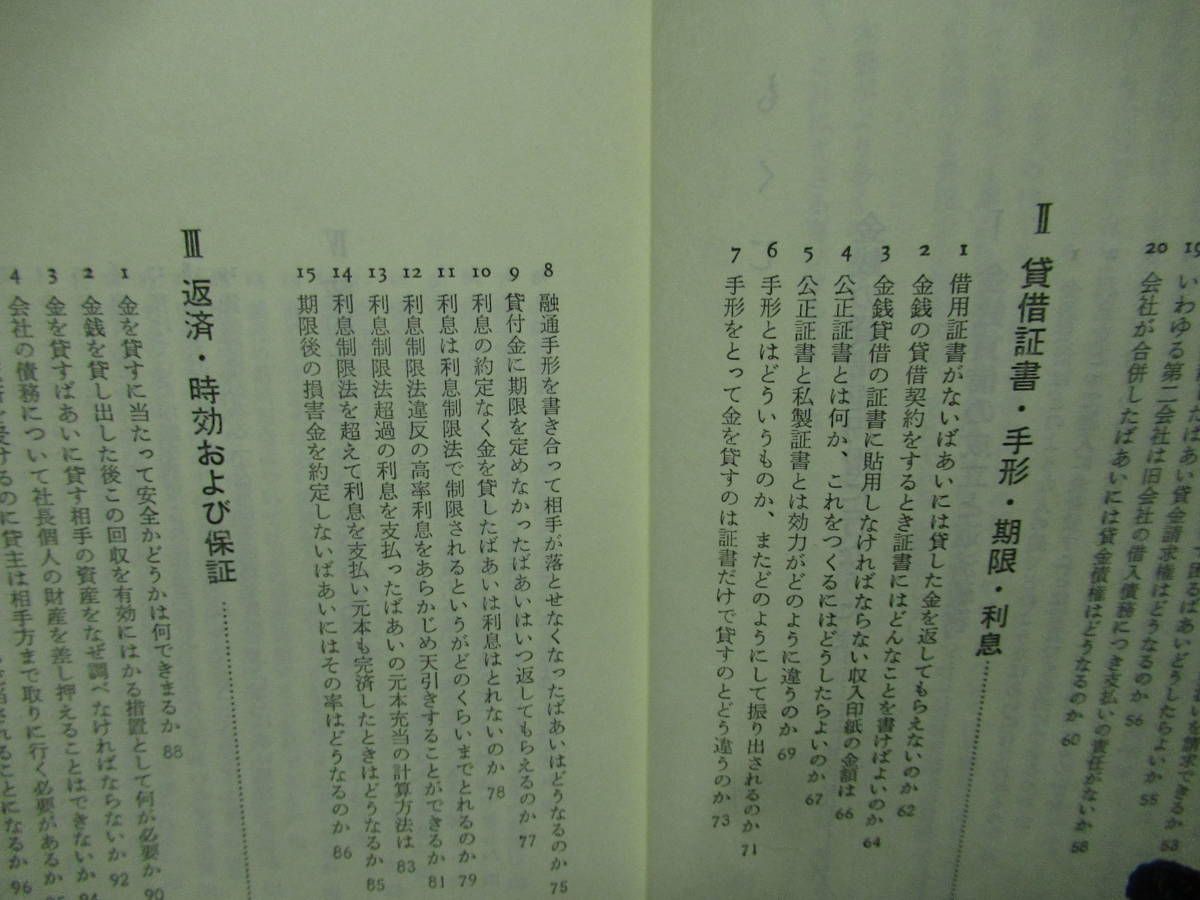 たばあい貸金請求権はどうなるのか 56
19 いわゆる第二会社は旧会社の借入債務につき支払いの責任がないか 58
20 会社が合併したばあいには貸金債権はどうなるのか 60
II 貸借証書・手形・期限・利息
1 借用証書がないばあいには貸した金を返してもらえないのか 62
2 金銭の貸借契約をするとき証書にはどんなことを書けばよいのか 64
3 金銭貸借の証書に貼用しなければならない収入印紙の金額は 66
4 公正証書とは何か、これをつくるにはどうしたらよいのか 67
5 公正証書と私製証書とは効力がどのように違うのか 69
6 手形とはどういうものか、またどのようにして振り出されるのか 71
7 手形をとって金を貸すのは証書だけで貸すのとどう違うのか 73
8 融通手形を書き合って相手が落とせなくなったばあいはどうなるのか 75
9 貸付金に期限を定めなかったばあいはいつ返してもらえるのか 77
10 利息の約定なく金を貸したばあいは利息はとれないのか 78
11 利息は利息制限法で制限されるというがどのくらいまでとれるのか 79
12 利息制限法違反の高率利息をあらかじめ天引きすることができるか 81
13 利息制限法超過の利息を支払ったばあいの元本充当の計算方法は 83
14 利息制限法を超えて利息を支払い元本も完済したときはどうなるか 85
15 期限後の損害金を約定しないばあいにはその率はどうなるのか 86
III 返済・時効および保証
1 金を貸すに当たって安全かどうかは何できまるか 88
2 金銭を貸し出した後この回収を有効にはかる措置として何が必要か 90
3 金を貸すばあいに貸す相手の資産をなぜ調べなければならないか 92
4 会社の債務について社長個人の財産を差し押えることはできないか 94
受けるのに貸主は相手方まで取りに行く必要があるか
されることになるか 96